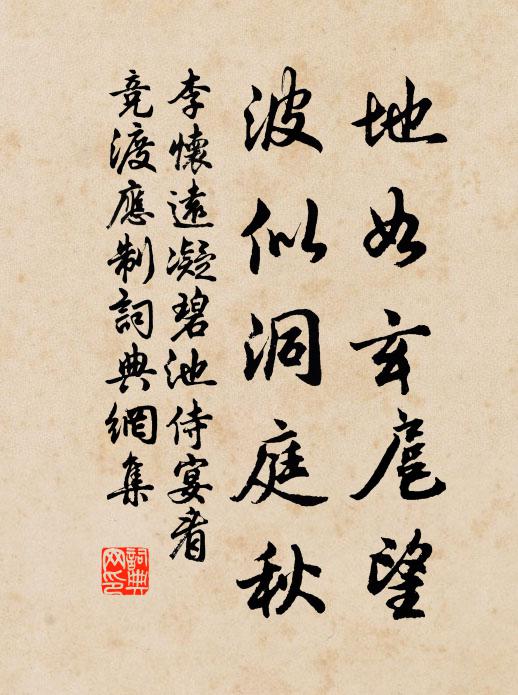 地如玄扈望
波似洞庭秋
李懷遠凝碧池侍宴看
競渡應制詞典網集
詞典网印